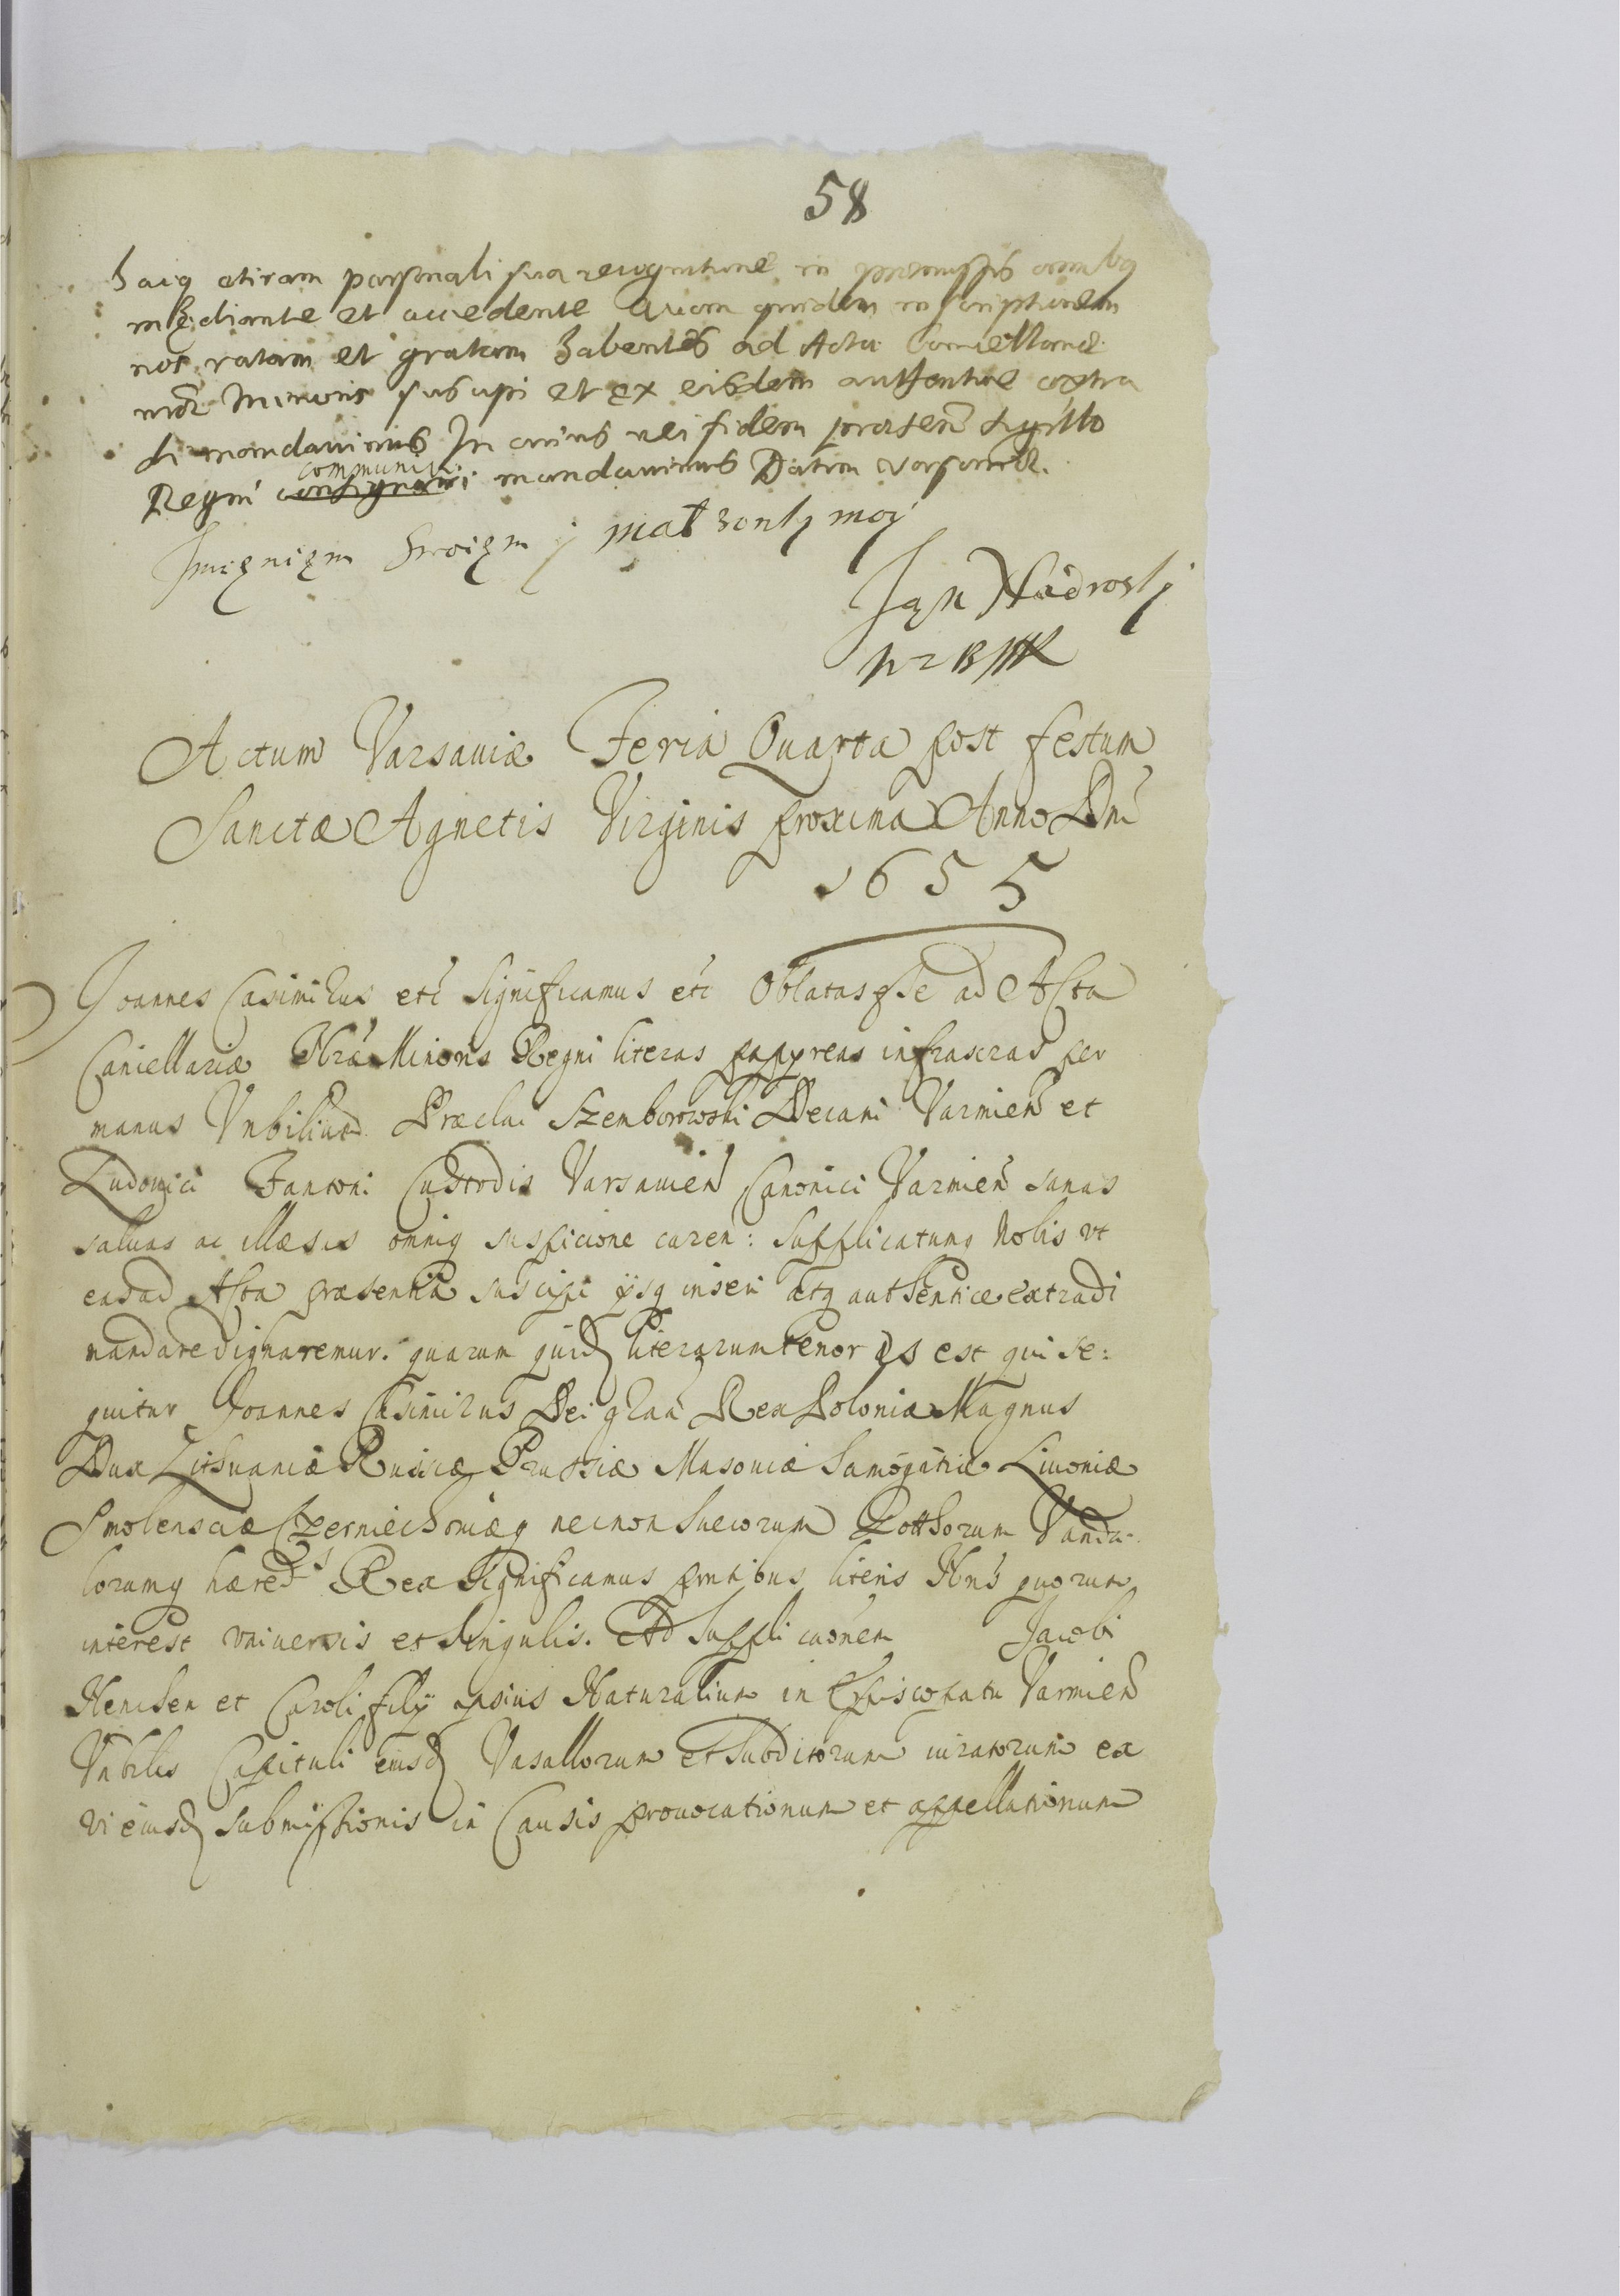 58
haiq etiam personali sua recognitione in praemissis omnibq
mediante et accedente Quam quidem inscriptionem
nos ratam et gratam habentes ad Acta Cancellariae
nrae Minoris suscipi et ex eisdem authentice extra
di mandauimus In cuius rei fidem praesen Sigillo
Regni consignari communiri mandauimus Datum Varsauiae.
Imięnięm Swoięm y małzonky moy
Jan Nadrosky
Actum Varsauiæ Feria Quarta post festum
Sanctæ Agnetis Virginis proxima Anno Dni
1655
Joannes Casimirus etc Significamus etc Oblatas esse ad Acta
Cancellariæ Nræ Minoris Regni literas papyreas infrascras per
manus Vnbilium Præclai Szemborowski Decani Varmien et
Ludouici Fantoni Custodis Varsauien Canonici Varmien sanas
saluas ac illæsas omniq suspicione caren: supplicatumq Nobis vt
eas ad Acta præsentia suscipi ijsq inseri atq authentice extradi
mandare dignaremur. quarum quid literarum tenor is est qui se:
quitur Joannes Casimirus Dei graa Rex Poloniæ Magnus
Dux Lithuaniæ Russiæ Prussiæ Masouiæ Samogitiæ Liuoniæ
Smolensciæ Czerniechouiæq necnon Suecorum Gotthorum Vanda-
lorumq hæreds Rex Significamus pntibus literis Nris quorum
interest vniuersis et singulis. Ad supplicaonem Jacobi
Henchen et Caroli filij ipsius Naturalium in Episcopatu Varmien
Vnbilis Capituli eiusd Vasallorum et subditorum iuratorum ex
vi eiusd submissionis in Causis prouocationum et appellationum